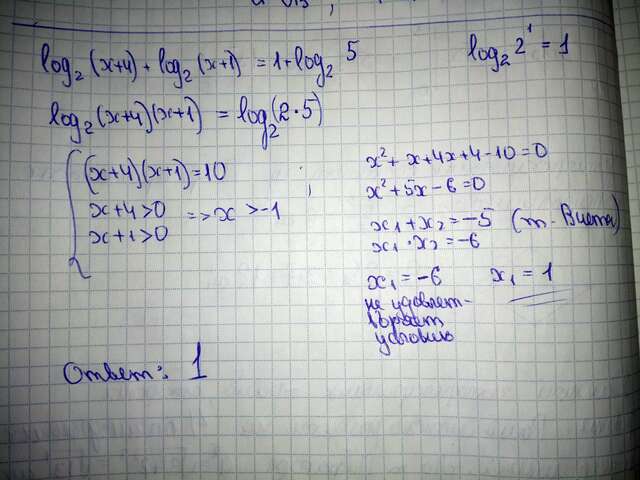 log₂(x+4) + log₂(x+1) = 1+log₂ 5
log₂ 2¹ = 1
log₂(x+4)(x+1) = log₂(2·5)
(x+4)(x+1)=10
x+4>0
x+1>0
=> x >-1
x²+ x+4x+4-10=0
x²+5x-6=0
x₁+x₂=-5 (т. Виета)
x₁·x₂=-6
x₁=-6
x₁=1
не удовлет-
воряет
условию
Ответ: 1